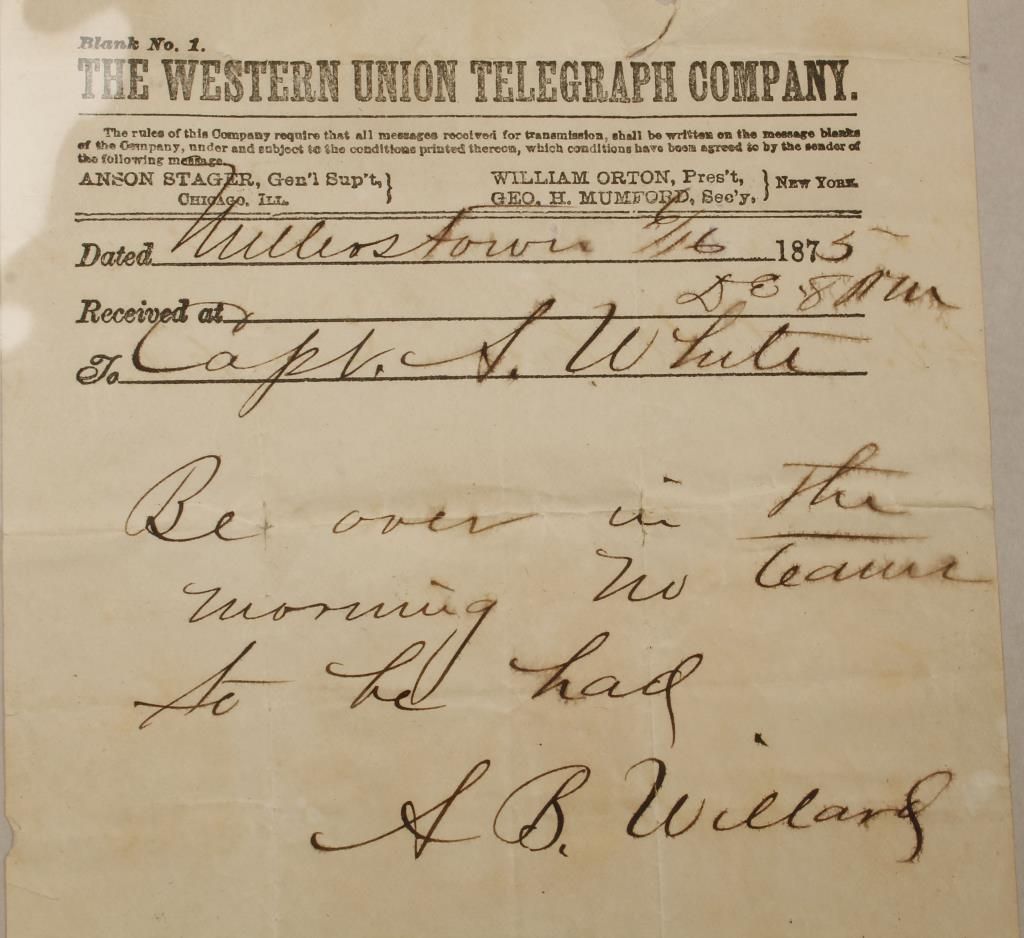 Blank No. 1.
THE WESTERN UNION TELEGRAPH COMPANY.
The rules of this Company require that all messages received for transmission, shall be written on the message blanks
of the Company, under and subject to the conditions printed thereon, which conditions have been agreed to by the sender of
the following message.
ANSON STAGER, Gen'l Sup't,
CHICAGO, ILL.
WILLIAM ORTON, Pres't,
GEO. H. MUMFORD, Sec'y,
NEW YORK.
Dated Millerstown /16 1875
Received at 8 PM
To Capt. A. White
Be over in the
morning No teams
to be had
A B. Willard